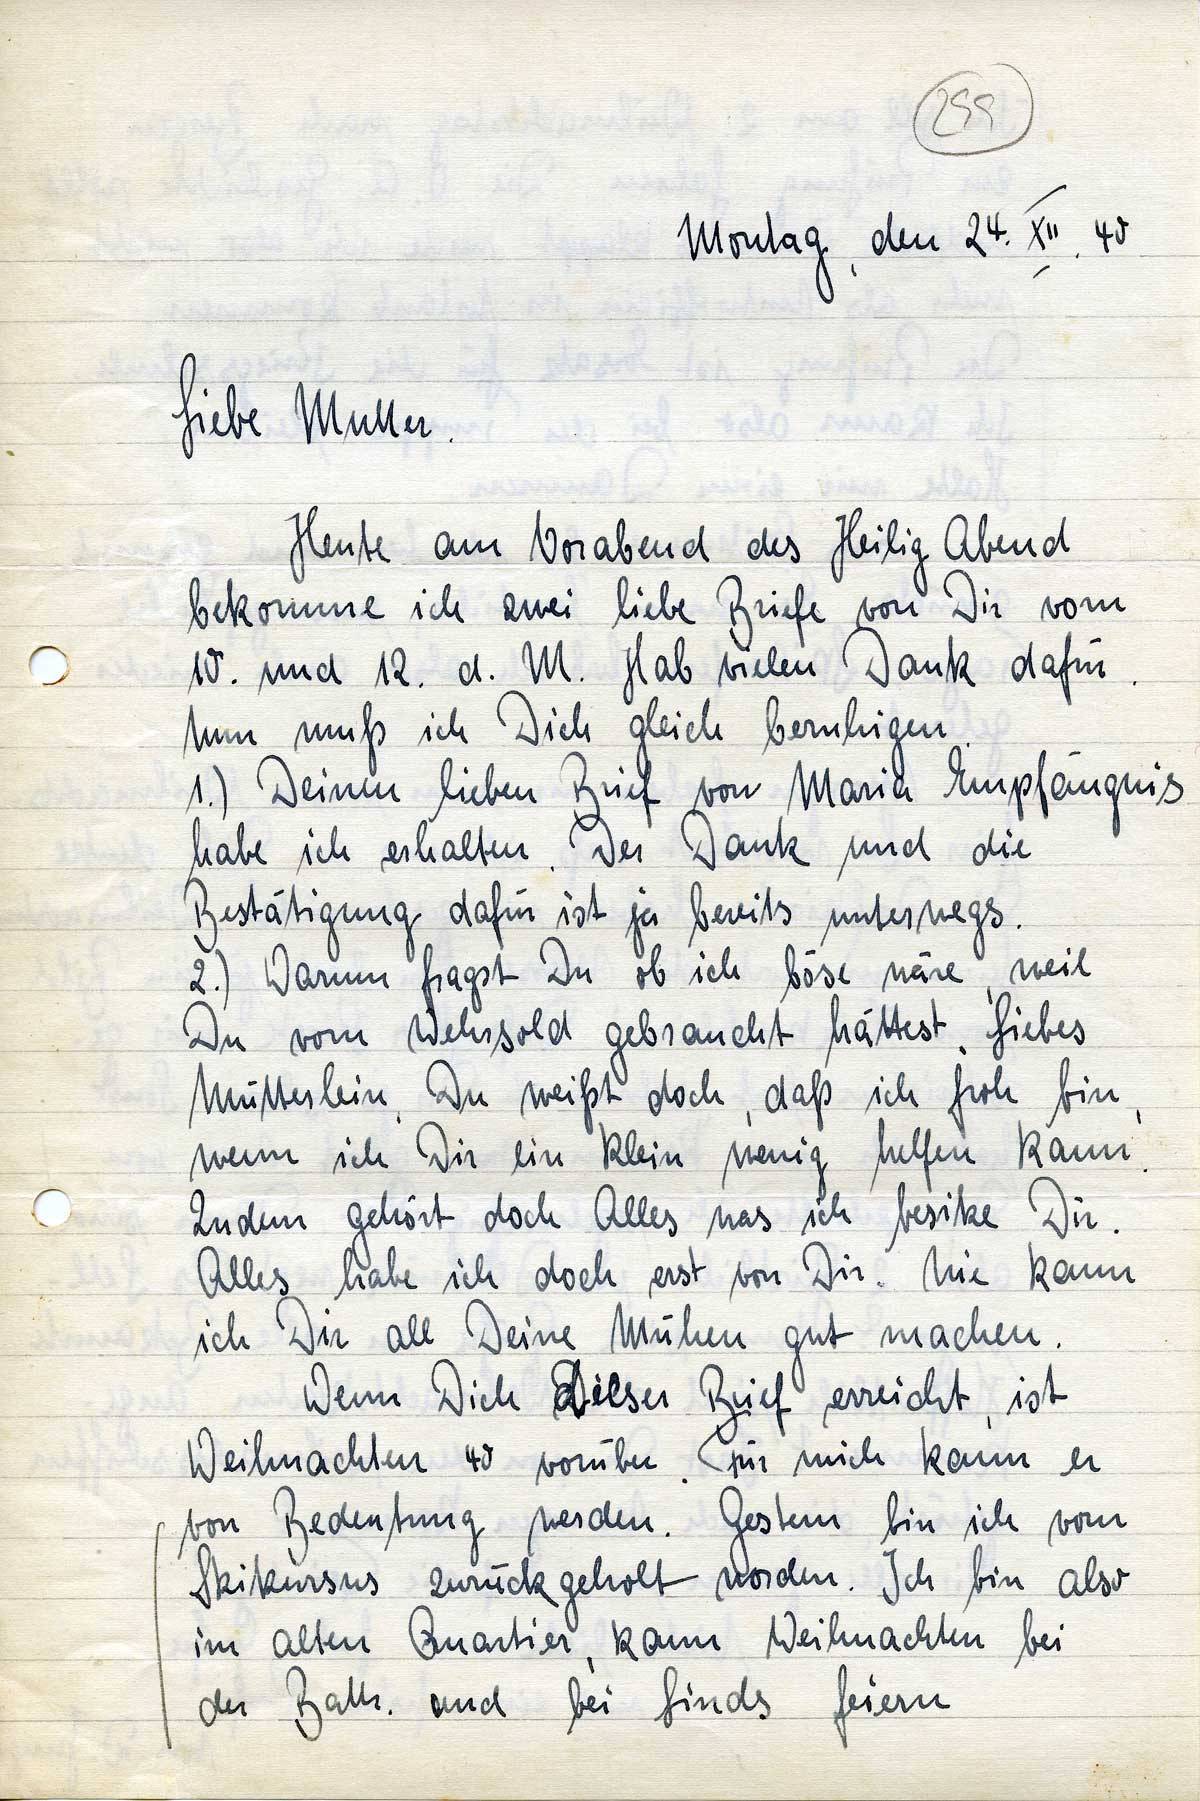 299
Montag, den 24. XII. 40
Liebe Mutter.
Heute am Vorabend des Heilig Abend
bekomme ich zwei liebe Briefe von Dir vom
10. und 12. d. M. Hab vielen Dank dafür.
Nun muß ich Dich gleich beruhigen.
1.) Deinen lieben Brief von Maria Empfängnis
habe ich erhalten. Der Dank und die
Bestätigung dafür ist ja bereits unterwegs.
2.) Warum fragst Du ob ich böse wäre, weil
Du vom Wehrsold gebraucht hättest. Liebes
Mütterlein, Du weißt doch, daß ich froh bin,
wenn ich Dir ein klein wenig helfen kann.
Zudem gehört doch Alles was ich besitze Dir.
Alles habe ich doch erst von Dir. Nie kann
ich Dir all Deine Mühen gut machen.
Wenn Dich dieser Brief erreicht, ist
Weihnachten 40 vorüber. Für mich kann er
von Bedeutung werden. Gestern bin ich vom
Skikursus zurückgeholt worden. Ich bin also
im alten Quartier, kann Weihnachten bei
der Battr. und bei Linds feiern